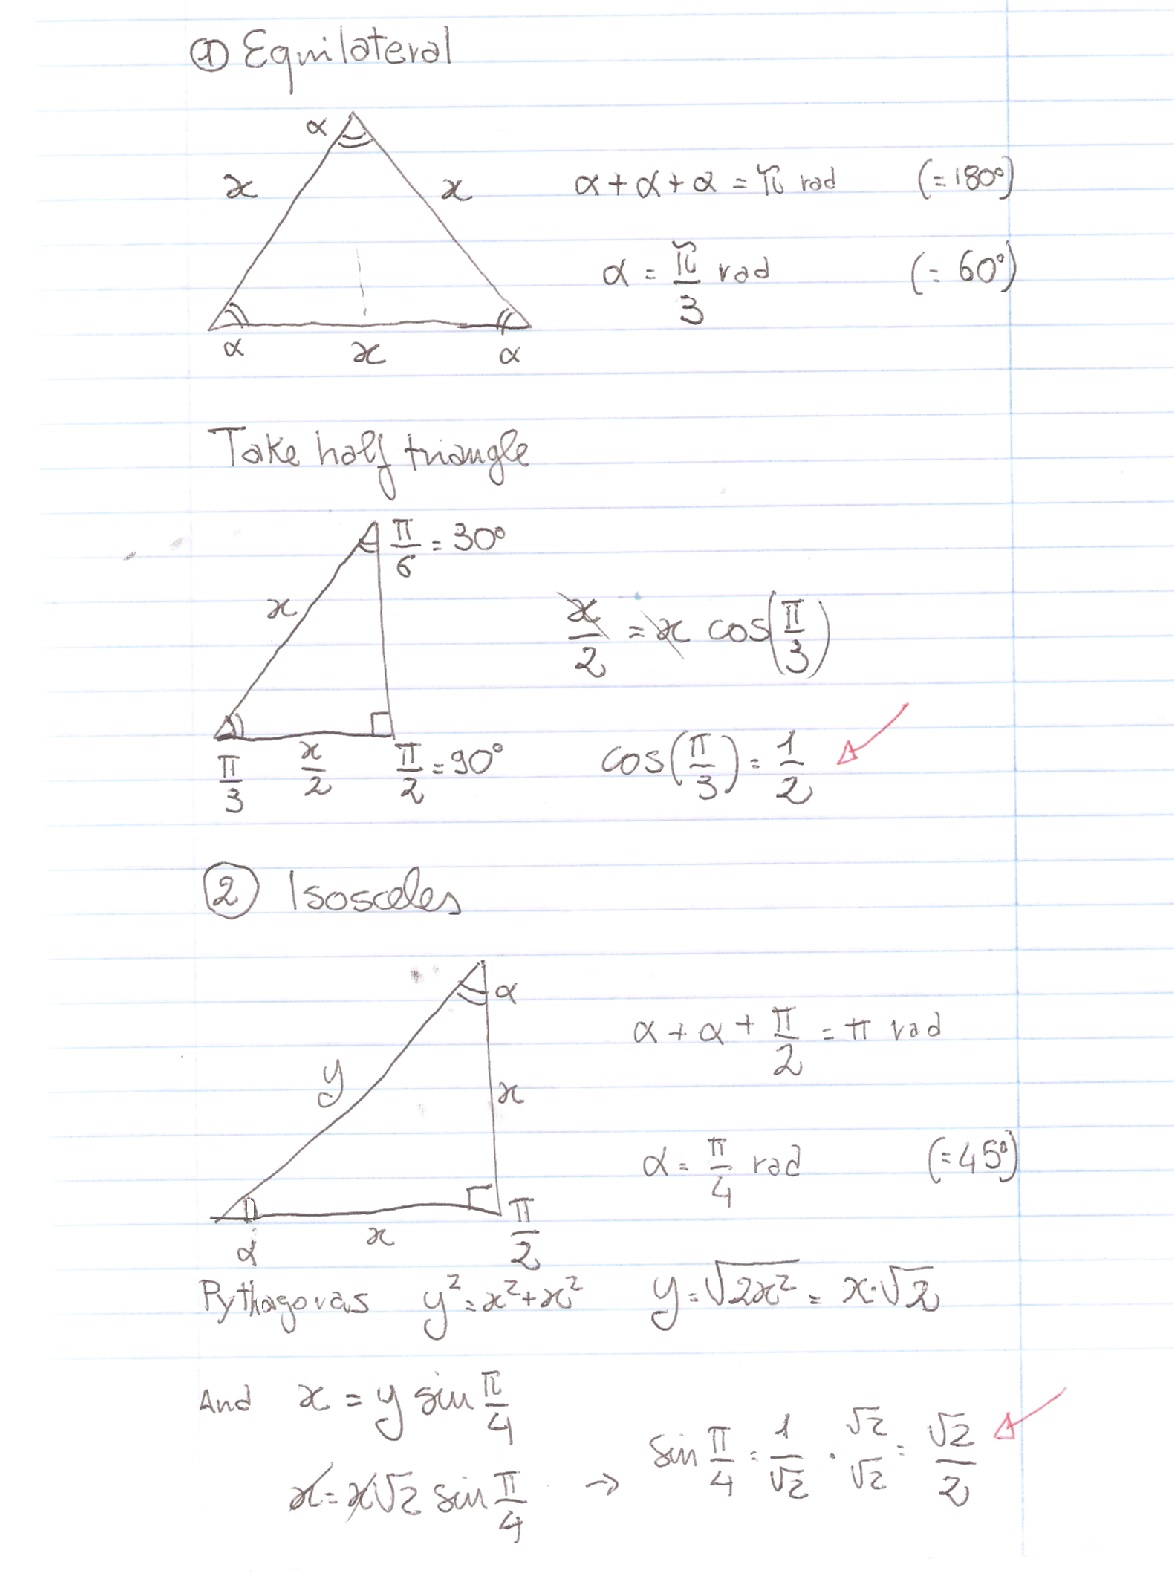 ① Equilateral
α
x x α + α + α = π rad (= 180°)
α = π/3 rad (= 60°)
α x α
Take half triangle
π/6 = 30°
x x/2 = x cos(π/3)
π/3 x/2 π/2 = 90° cos(π/3) = 1/2
② Isosceles
α
α + α + π/2 = π rad
y x
α = π/4 rad (= 45°)
α x π/2
Pythagoras y² = x² + x² y = √2x² = x·√2
And x = y sin π/4
x = x√2 sin π/4 → sin π/4 = 1/√2 · √2/√2 = √2/2